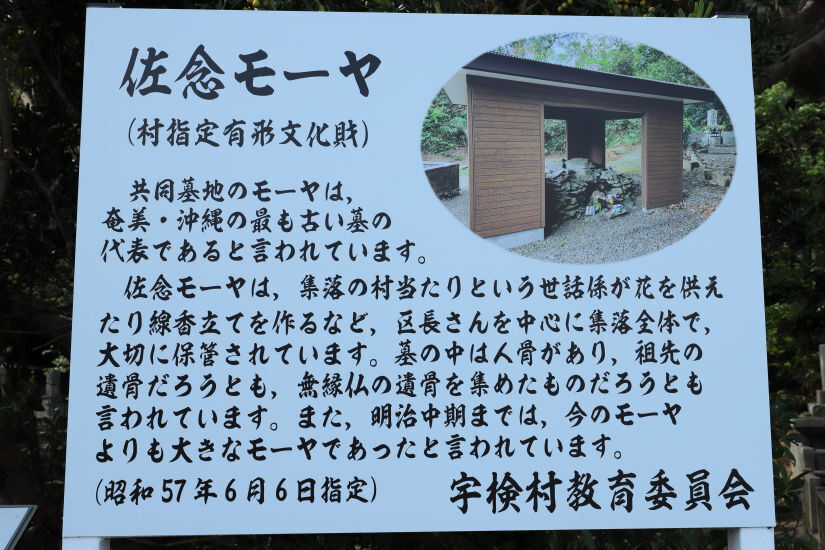 佐念モーヤ
(村指定有形文化財)
共同墓地のモーヤは,
奄美・沖縄の最も古い墓の
代表であると言われています。
佐念モーヤは,集落の村当たりという世話係が花を供え
たり線香立てを作るなど,区長さんを中心に集落全体で,
大切に保管されています。墓の中は人骨があり,祖先の
遺骨だろうとも,無縁仏の遺骨を集めたものだろうとも
言われています。また,明治中期までは,今のモーヤ
よりも大きなモーヤであったと言われています。
(昭和57年6月6日指定)
宇検村教育委員会